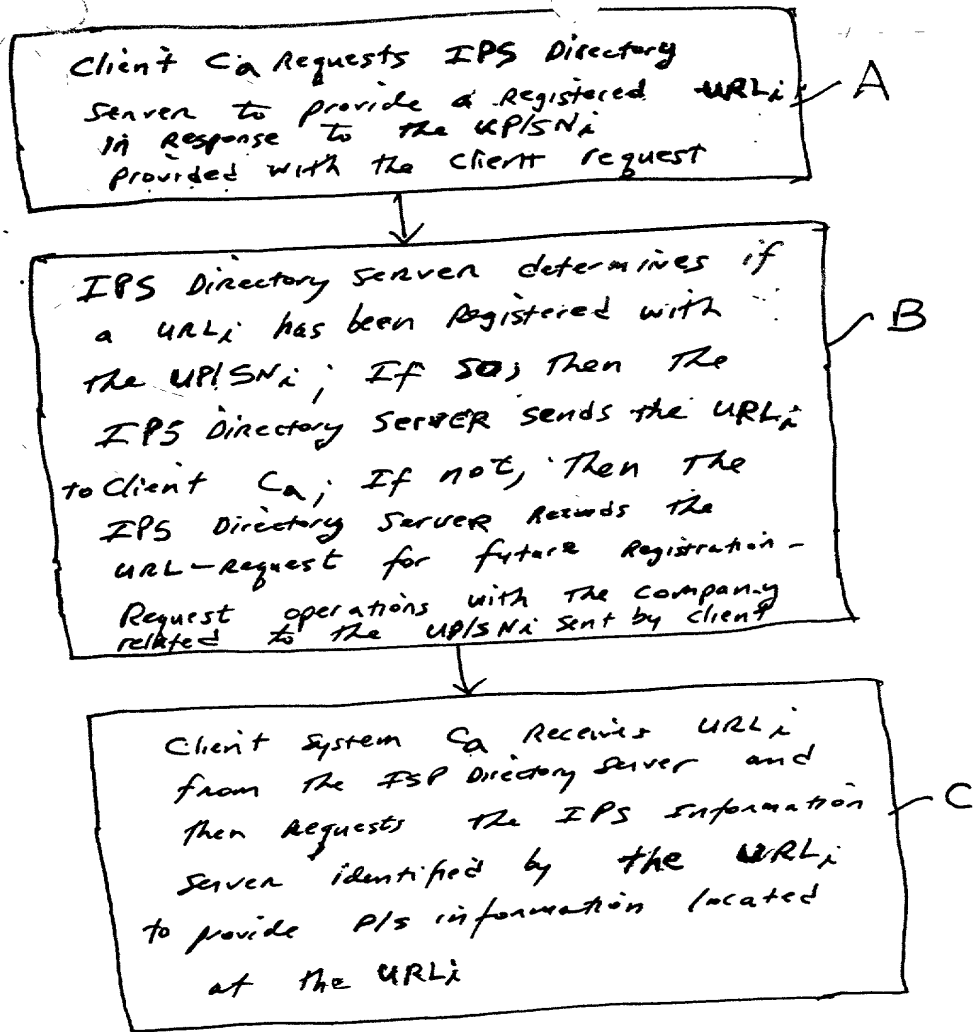 Client Ca Requests IPS Directory
Server to provide a Registered URLi
in Response to the UP/SNi
provided with the Client request
A
IPS Directory Server determines if
a URLi has been Registered with
the UP/SNi; If so; then the
IPS Directory Server sends the URLi
to Client Ca; If not, Then the
IPS Directory Server Records the
URL-Request for future Registration-
Request operations with the company
related to the UP/SNi sent by client
B
Client System Ca Receives URLi
from the ISP Directory Server and
then Requests the IPS Information
Server identified by the URLi
to provide P/S information located
at the URLi
C